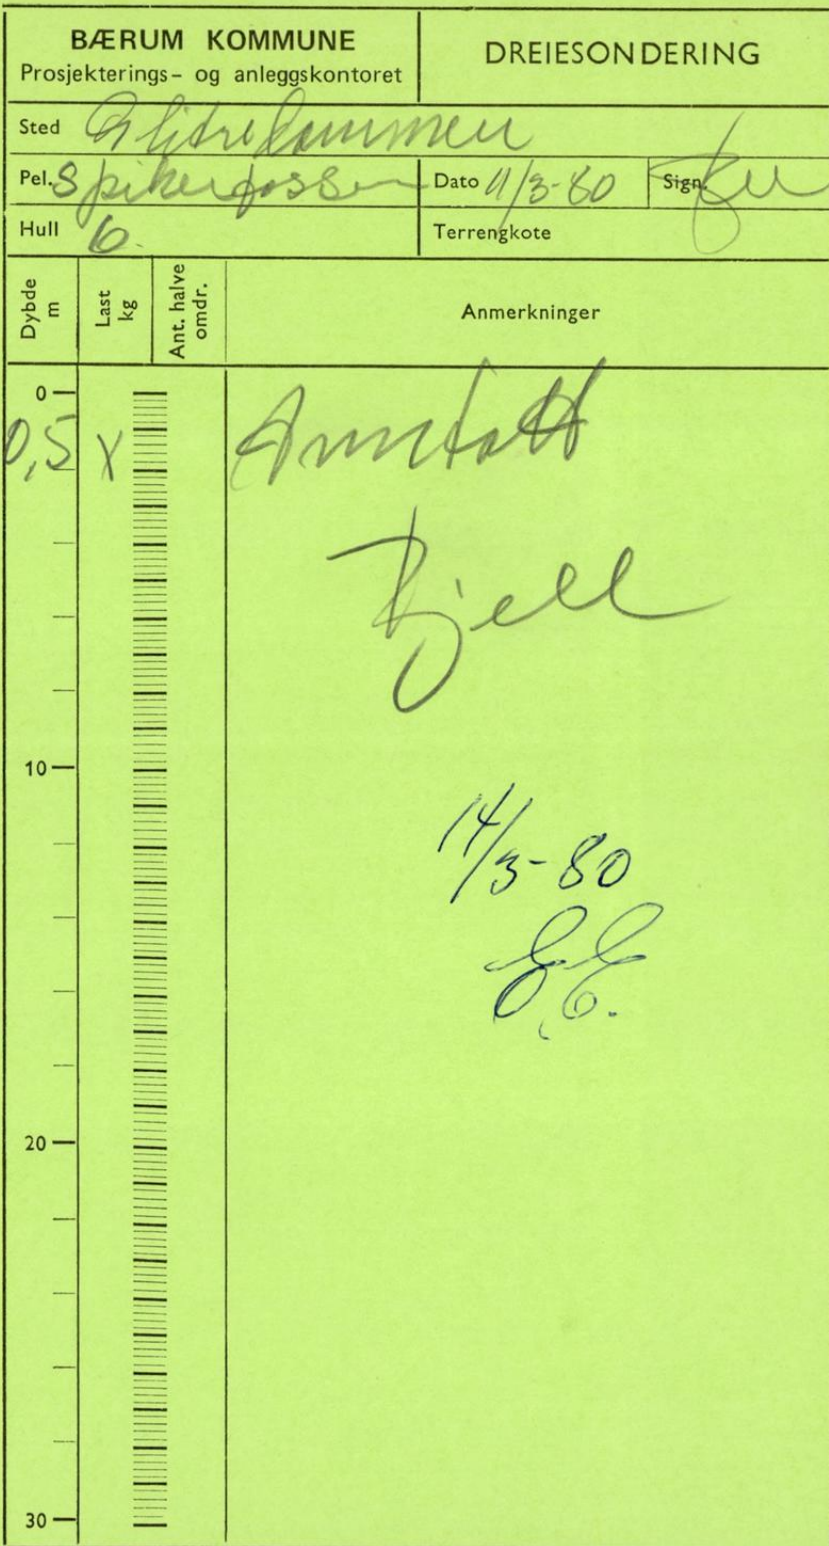 BÆRUM KOMMUNE
Prosjekterings- og anleggskontoret
DREIESONDERING
Sted Glitredammen
Pel. Spikerfossen
Dato 11/3-80
Sign.
Hull 6.
Terrengkote
Dybde m
Last kg
Ant. halve omdr.
Anmerkninger
0
0,5 X Antatt
Fjell
10
14/3-80
20
30